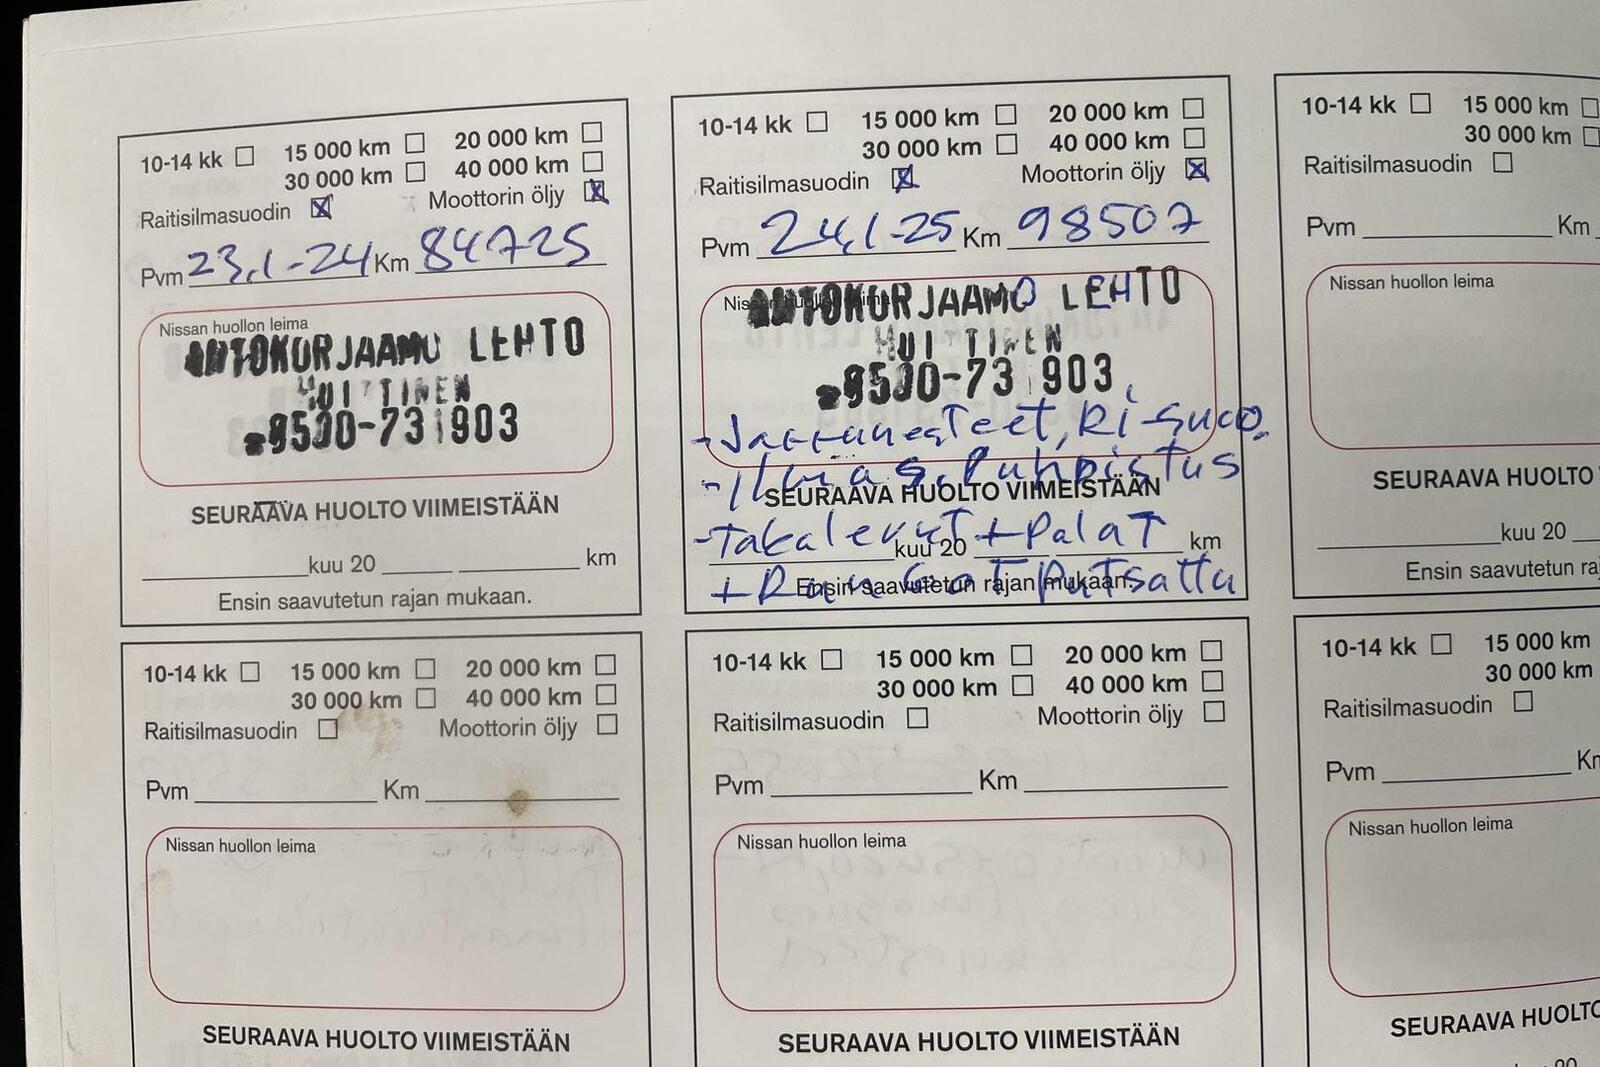 10-14 kk 15 000 km 20 000 km
30 000 km 40 000 km
Raitisilmasuodin Moottorin öljy
Pvm 23.1-24 Km 84725
Nissan huollon leima
AUTOKORJAAMO LEHTO
HUITTINEN
0500-731903
SEURAAVA HUOLTO VIIMEISTÄÄN
kuu 20 km
Ensin saavutetun rajan mukaan.
10-14 kk 15 000 km 20 000 km
30 000 km 40 000 km
Raitisilmasuodin Moottorin öljy
Pvm 24.1-25 Km 98507
Nissan huollon leima
AUTOKORJAAMO LEHTO
HUITTINEN
0500-731903
-Jarrunesteet, Ri-suod.
-Ilmas. Puhdistus
SEURAAVA HUOLTO VIIMEISTÄÄN
-Takalevyt + Palat
kuu 20 km
Ensin saavutetun rajan mukaan.
Putsattu
10-14 kk 15 000 km
30 000 km
Raitisilmasuodin
Pvm Km
Nissan huollon leima
SEURAAVA HUOLTO
kuu 20
Ensin saavutetun
10-14 kk 15 000 km 20 000 km
30 000 km 40 000 km
Raitisilmasuodin Moottorin öljy
Pvm Km
Nissan huollon leima
SEURAAVA HUOLTO VIIMEISTÄÄN
10-14 kk 15 000 km 20 000 km
30 000 km 40 000 km
Raitisilmasuodin Moottorin öljy
Pvm Km
Nissan huollon leima
SEURAAVA HUOLTO VIIMEISTÄÄN
10-14 kk 15 000 km
30 000 km
Raitisilmasuodin
Pvm
Nissan huollon leima
SEURAAVA